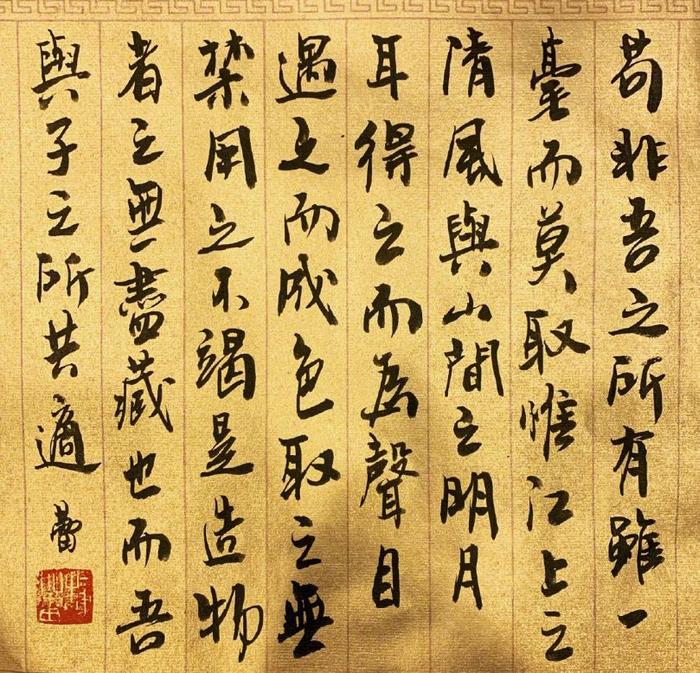 苟非吾之所有雖一
毫而莫取惟江上之
清風與山間之明月
耳得之而為聲目
遇之而成色取之無
禁用之不竭是造物
者之無盡藏也而吾
與子之所共適